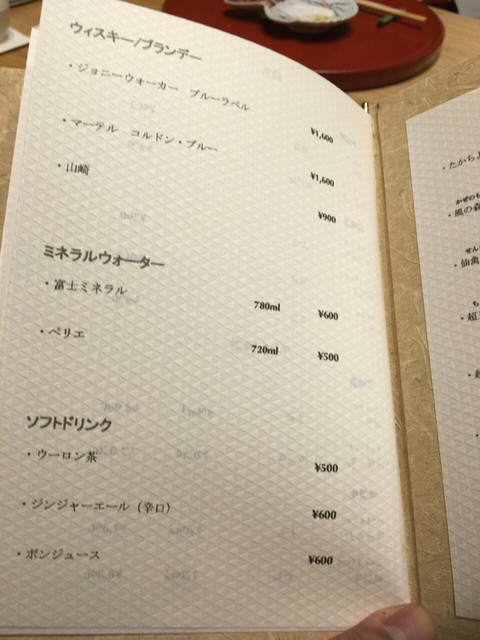 ウィスキー/ブランデー
・ジョニーウォーカー ブルーラベル ¥1,600
・マーテル コルドン・ブルー ¥1,600
・山崎 ¥900
ミネラルウォーター
・富士ミネラル 780ml ¥600
・ペリエ 720ml ¥500
ソフトドリンク
・ウーロン茶 ¥500
・ジンジャーエール（辛口） ¥600
・ポンジュース ¥600
・たかち
かぜのも
・風の森
せん
・仙禽